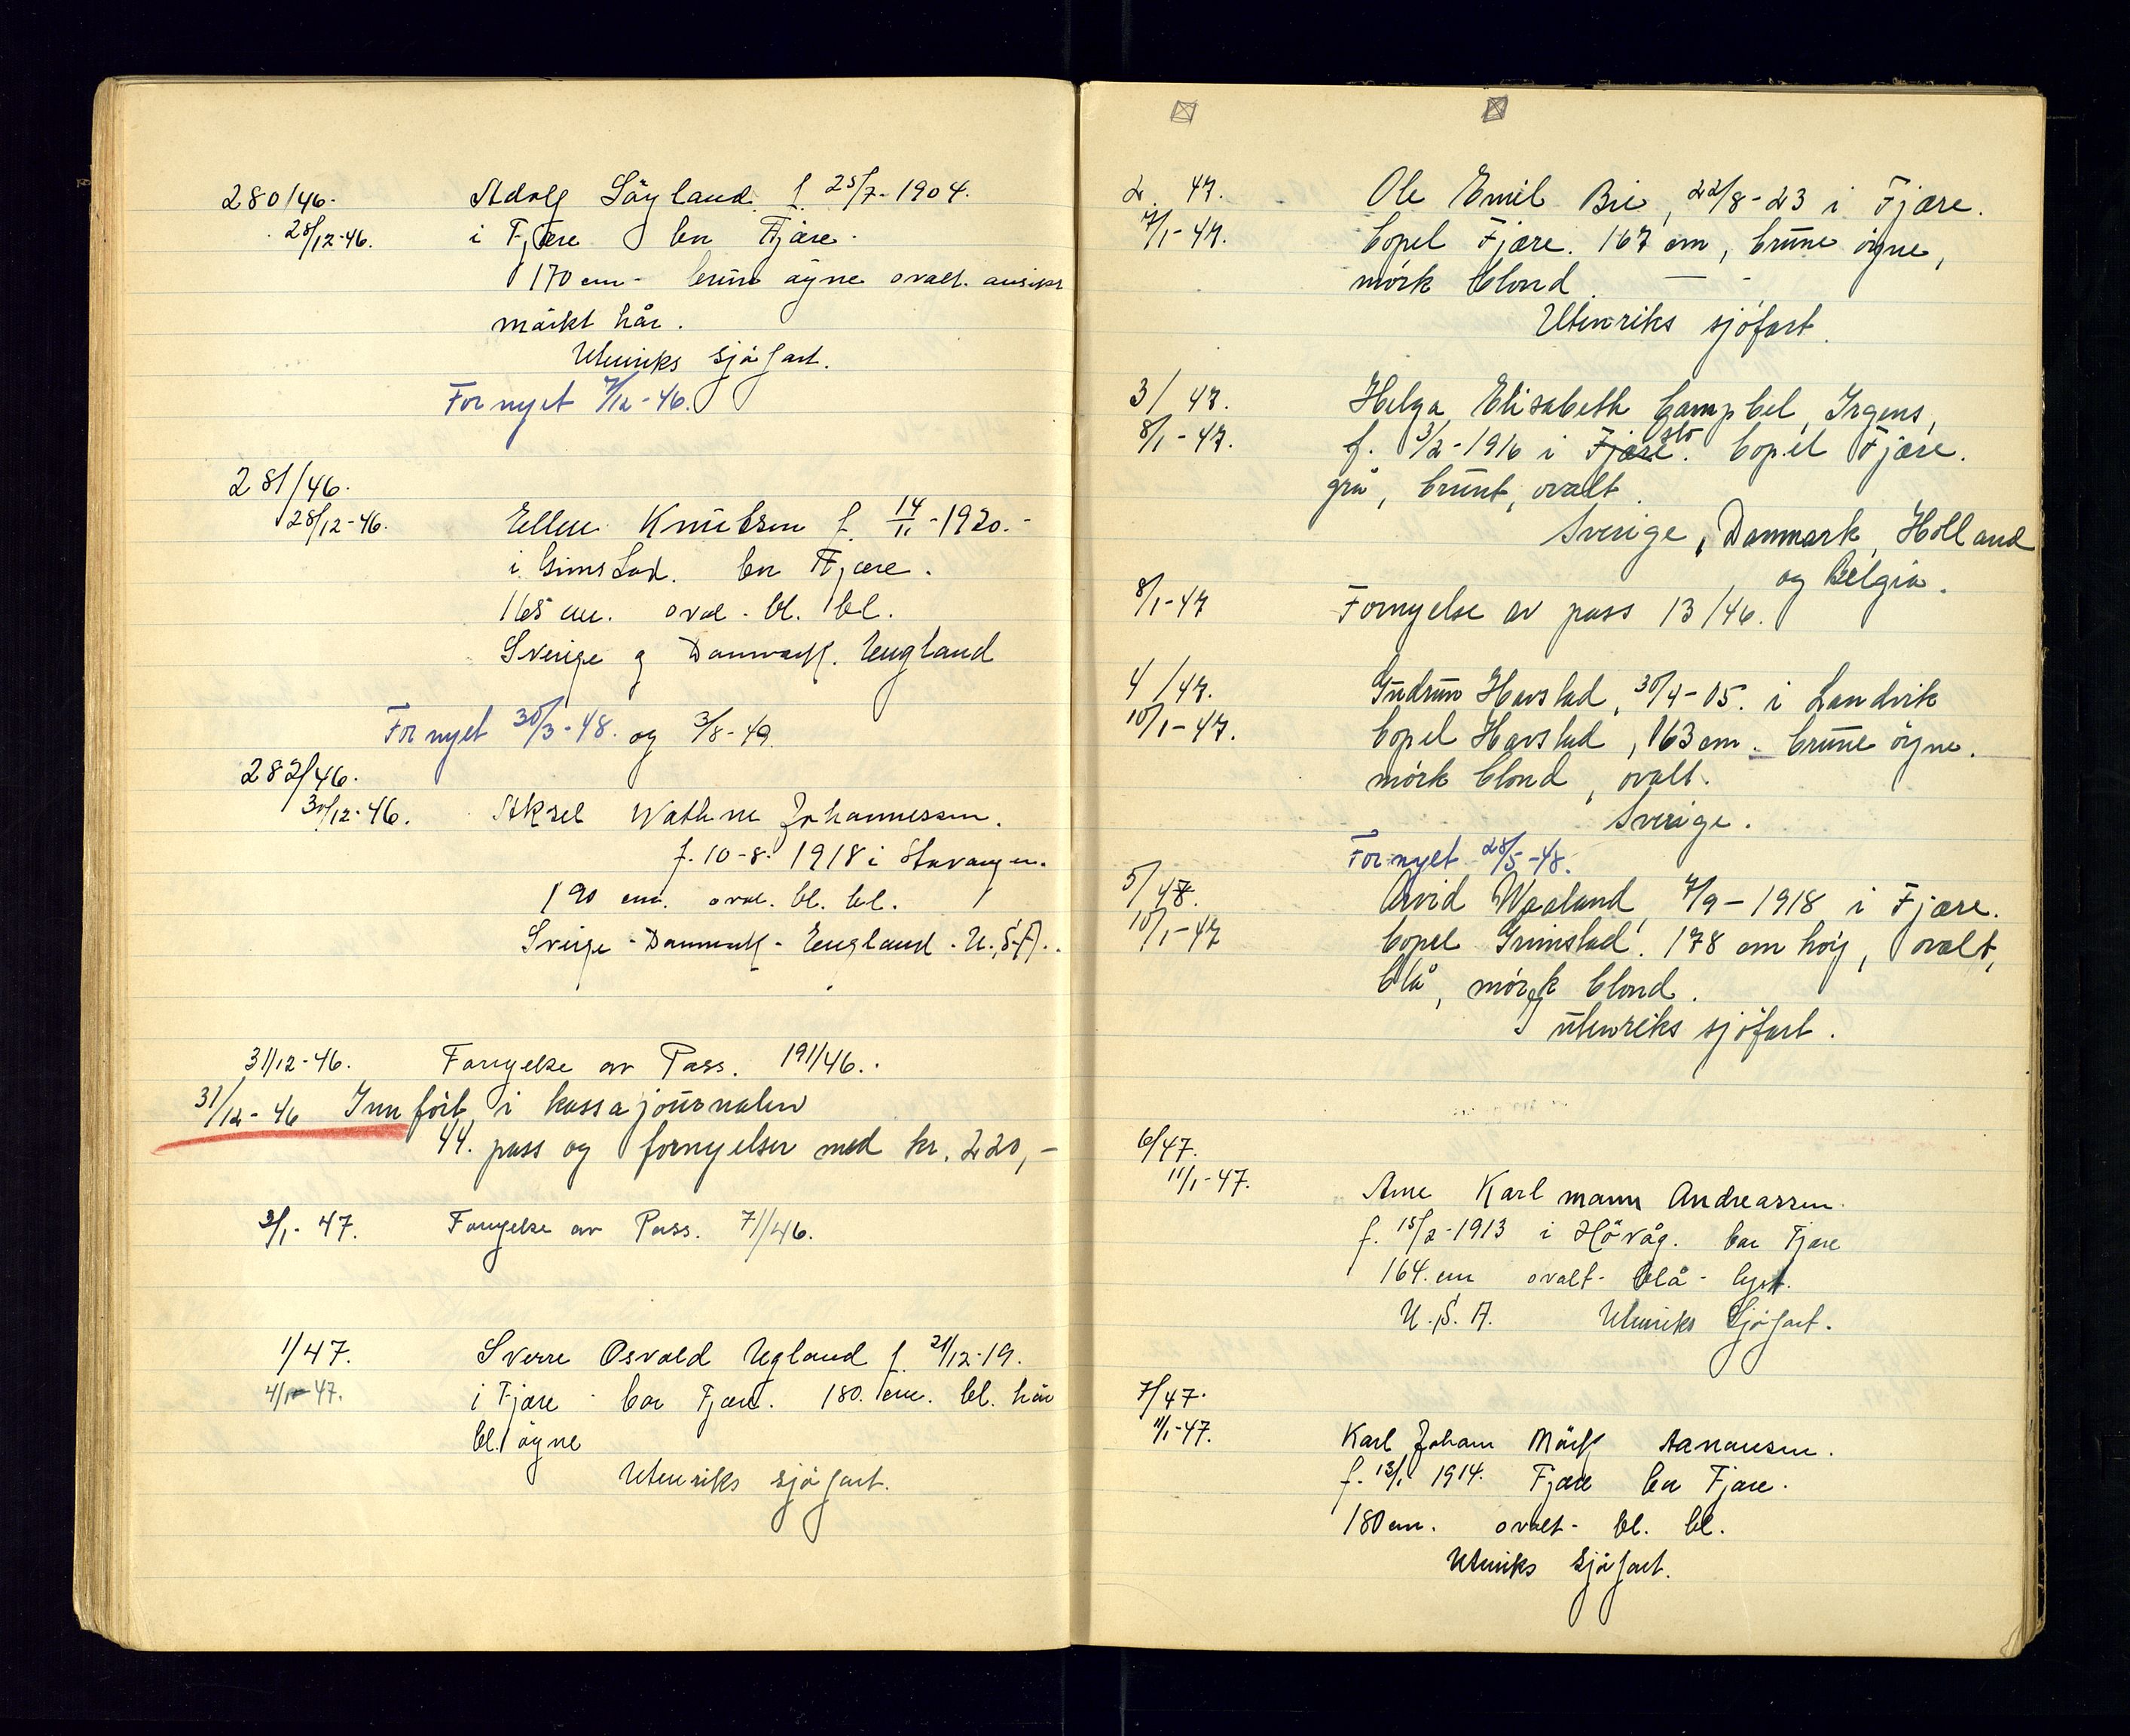 280/46. Adolf Söyland f. 25/7-1904.
28/12-46. i Fjære bor Fjære.
170 cm - brune öyne ovalt. ansikt
mörkt hår.
Utenriks sjöfart.
Fornyet 7/12-46.
281/46.
28/12-46. Ellen Knutsen f. 14/11-1920.-
i Grimstad. bor Fjære.
165 cm. oval - bl. bl.
Sverige og Danmark. England
Fornyet 30/3-48. og 3/8-49.
282/46.
30/12-46. Aksel Wathne Johannessen.
f. 10-8-1918 i Stavanger.
190 cm. oval. bl. bl.
Sverige - Danmark - England - U.S.A..
31/12-46. Fornyelse av Pass. 191/46..
31/12-46 Innfört i kassajournalen
44. pass og fornyelser med kr. 220,-
3/1-47. Fornyelse av Pass. 71/46.
1/47. Sverre Osvald Ugland f. 21/12-19.
4/1-47. i Fjære - bor Fjære. 180. cm. bl. hår
bl. öyne
Utenriks sjöfart.
2. 47. Ole Emil Bie, 22/8-23 i Fjære.
7/1-47. bopel Fjære. 167 cm, brune öyne,
mörk blond.
Utenriks sjöfart.
3/47. Helga Elisabeth Campbel Irgens,
8/1-47. f. 3/2-1916 i Fjære slo. bopel Fjære.
grå, brunt, ovalt.
Sverige, Danmark, Holland
og Belgia.
8/1-47 Fornyelse av pass 13/46.
4/47. Gudrun Havstad, 30/4-05. i Landvik
10/1-47. bopel Havstad, 163 cm. brune öyne.
mörk blond, ovalt.
Sverige.
Fornyet 28/5-48.
5/47. Arvid Waaland, 7/9-1918 i Fjære.
10/1-47 bopel Grimstad. 178 cm höy, ovalt,
blå, mörk blond.
utenriks sjöfart.
6/47.
11/1-47. Arne Karlmann Andreassen.
f. 15/2-1913 i Hövåg. bor Fjære
164. cm ovalt - blå - lyst.
U.S.A. Utenriks Sjöfart.
7/47.
11/1-47. Karl Johan Mörk Aanonsen.
f. 13/1 1914. Fjære bor Fjære.
180 cm. ovalt - bl. bl.
Utenriks Sjöfart.